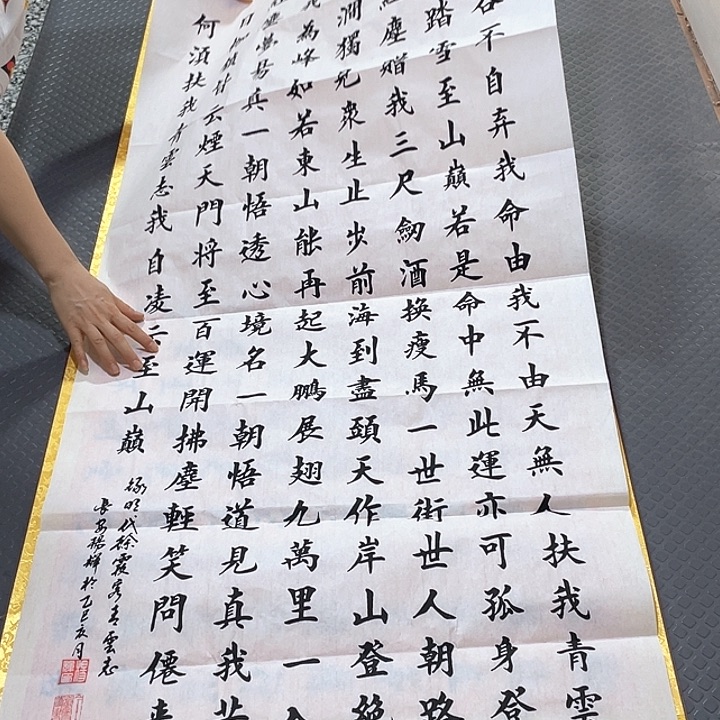 不自弃我命由我不由天無人扶我青雲
踏雪至山巔若是命中無此運亦可孤身登
塵贈我三尺劒酒換瘦馬一世街世人朝路
澗獨兒衆生止步前海到盡頭天作岸山登絶
我為峰如若東山能再起大鵬展翅九萬里一
兵一朝悟透心境名一朝悟道見真我若
云煙天門将至百運開拂塵輕笑問僊
何湏扶我青雲志我自凌云至山巔
録明代徐霞客青雲志
長安楊輝於乙巳亥月